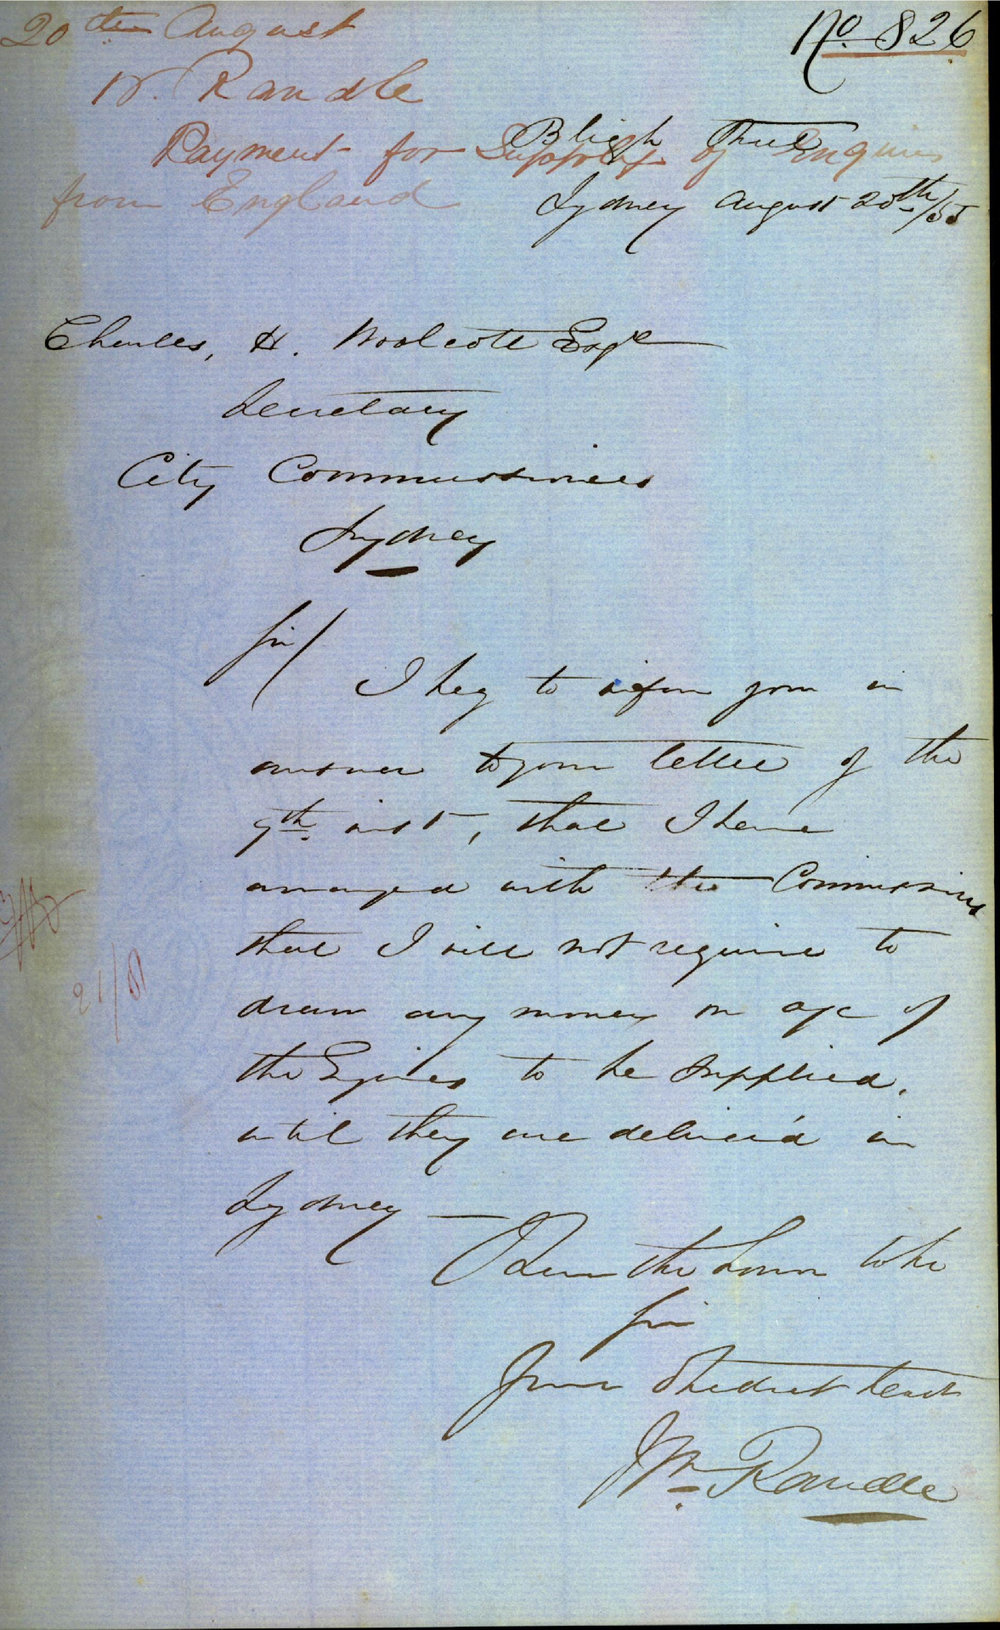 20th August
No. 826
W. Randle
Payment for Supply of Engines
from England
Bligh Street
Sydney August 20th/55
Charles, H. Woolcott Esqre
Secretary
City Commissioners
Sydney
Sir/
I beg to inform you in
answer to your letter of the
9th inst, that I have
arranged with the Commissioners
that I will not require to
draw any money on a/c of
the Engines to be supplied,
until they are deliver'd in
Sydney —
I have the honor to be
Sir
Your obedient Servt
Wm. Randle